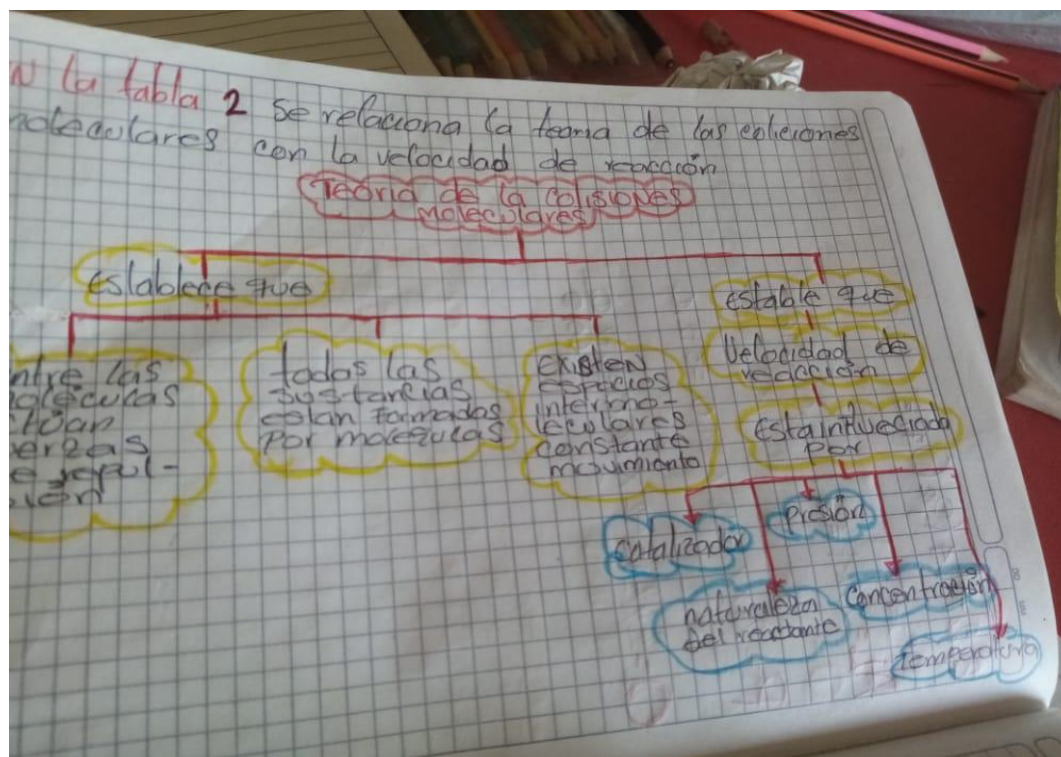 N la tabla 2 se relaciona la teoria de las coliciones
moleculares con la velocidad de reacción
Teoria de la colisiones
moleculares
establece que
estable que
ntre las
oléculas
túan
erzas
e repul-
sión
todas las
sustancias
estan formadas
por moleculas
Existen
espacios
intermo-
leculares
constante
movimiento
Velocidad de
reacción
Esta influeciada
por
catalizador
Presión
naturaleza
del reactante
Concentración
temperatura